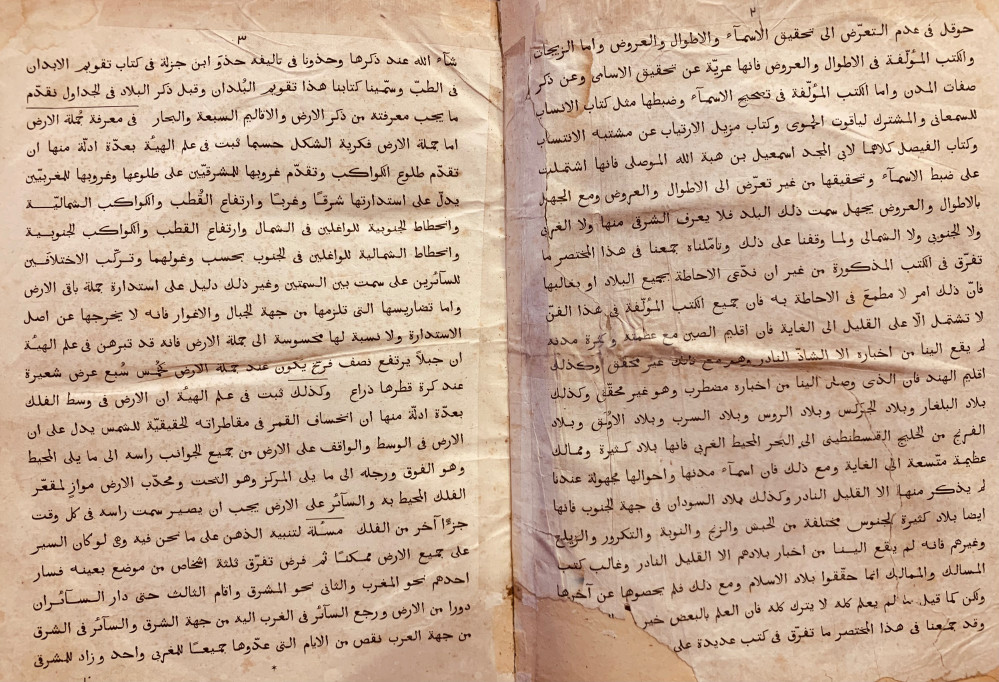 ٢
حوقل فى عدم التعرّض الى تحقيق الاسمآء والاطوال والعروض واما الزيجات
والكتب المؤلّفة فى الاطوال والعروض فانها عريّة عن تحقيق الاسامى وعن ذكر
صفات المدن واما الكتب المؤلّفة فى تصحيح الاسمآء وضبطها مثل كتاب الانساب
للسمعانى والمشترك لياقوت الحموى وكتاب مزيل الارتياب عن مشتبه الانتساب
وكتاب الفيصل كلاهما لابى المجد اسمعيل بن هبة الله الموصلى فانها اشتملت
على ضبط الاسمآء وتحقيقها من غير تعرّض الى الاطوال والعروض ومع الجهل
بالاطوال والعروض يجهل سمت ذلك البلد فلا يعرف الشرقى منها ولا الغربى
ولا الجنوبى ولا الشمالى ولما وقفنا على ذلك وتاملناه جمعنا فى هذا المختصر ما
تفرّق فى الكتب المذكورة من غير ان ندّعى الاحاطة بجميع البلاد او بغالبها
فانّ ذلك امر لا مطمع فى الاحاطة به فان جميع الكتب المؤلّفة فى هذا الفنّ
لا تشتمل الّا على القليل الى الغاية فان اقليم الصين مع عظمته وكثرة مدنه
لم يقع الينا من اخباره الا الشاذّ النادر وهو مع ذلك غير محقّق وكذلك
اقليم الهند فان الذى وصل الينا من اخباره مضطرب وهو غير محقّق وكذلك
بلاد البلغار وبلاد الجركس وبلاد الروس وبلاد السرب وبلاد الاولق وبلاد
الفرنج من الخليج القسطنطينى الى البحر المحيط الغربى فانها بلاد كثيرة وممالك
عظيمة متّسعة الى الغاية ومع ذلك فان اسمآء مدنها واحوالها مجهولة عندنا
لم يذكر منها الا القليل النادر وكذلك بلاد السودان فى جهة الجنوب فانها
ايضا بلاد كثيرة لجنوس مختلفة من الحبش والزنج والنوبة والتكرور والزيلع
وغيرهم فانه لم يقع الينا من اخبار بلادهم الا القليل النادر وغالب كتب
المسالك والممالك انما حقّقوا بلاد الاسلام ومع ذلك فلم يحصوها عن آخرها
ولكن كما قيل ما لم يعلم كله لا يترك كله فان العلم بالبعض خير
وقد جمعنا فى هذا المختصر ما تفرّق فى كتب عديدة على
٣
شآء الله عند ذكرها وحذونا فى تاليفه حذو ابن جزلة فى كتاب تقويم الابدان
فى الطبّ وسمّينا كتابنا هذا تقويم البُلدان وقبل ذكر البلاد فى الجداول نقدّم
ما يجب معرفته من ذكر الارض والاقاليم السبعة والبحار فى معرفة جُملة الارض
اما جملة الارض فكرية الشكل حسبما ثبت فى علم الهيئة بعدّة ادلّة منها ان
تقدّم طلوع الكواكب وتقدّم غروبها للمشرقيّين على طلوعها وغروبها للمغربيّين
يدلّ على استدارتها شرقًا وغربًا وارتفاع القُطب والكواكب الشماليّة
وانحطاط الجنوبية للواغلين فى الشمال وارتفاع القطب والكواكب الجنوبية
وانحطاط الشمالية للواغلين فى الجنوب بحسب وغولهما وتركّب الاختلافين
للسآئرين على سمت بين السمتين وغير ذلك دليل على استدارة جملة باقى الارض
واما تضاريسها التى تلزمها من جهة الجبال والاغوار فانه لا يخرجها عن اصل
الاستدارة ولا نسبة لها محسوسة الى جملة الارض فانه قد تبرهن فى علم الهيئة
ان جبلًا يرتفع نصف فرسخ يكون عند جملة الارض كخُمس سُبع عرض شعيرة
عند كرة قطرها ذراع وكذلك ثبت فى علم الهيئة ان الارض فى وسط الفلك
بعدة ادلّة منها ان انخساف القمر فى مقاطراته الحقيقيّة للشمس يدل على ان
الارض فى الوسط والواقف على الارض من جميع الجوانب راسه الى ما يلى المحيط
وهو الفوق ورجله الى ما يلى المركز وهو التحت ومحدّب الارض موازٍ لمقعّر
الفلك المحيط به والسآئر على الارض يجب ان يصير سمت راسه فى كل وقت
جزءًا آخر من الفلك مسئلة لتنبيه الذهن على ما نحن فيه وهى لو كان السير
على جميع الارض ممكنًا ثم فرض تفرّق ثلثة اشخاص من موضع بعينه فسار
احدهم نحو المغرب والثانى نحو المشرق واقام الثالث حتى دار السآئران
دورا من الارض ورجع السآئر فى الغرب اليه من جهة الشرق والسآئر فى الشرق
من جهة الغرب نقص من الايام التى عدّوها جميعًا للمغربى واحد وزاد للمشرقى
*